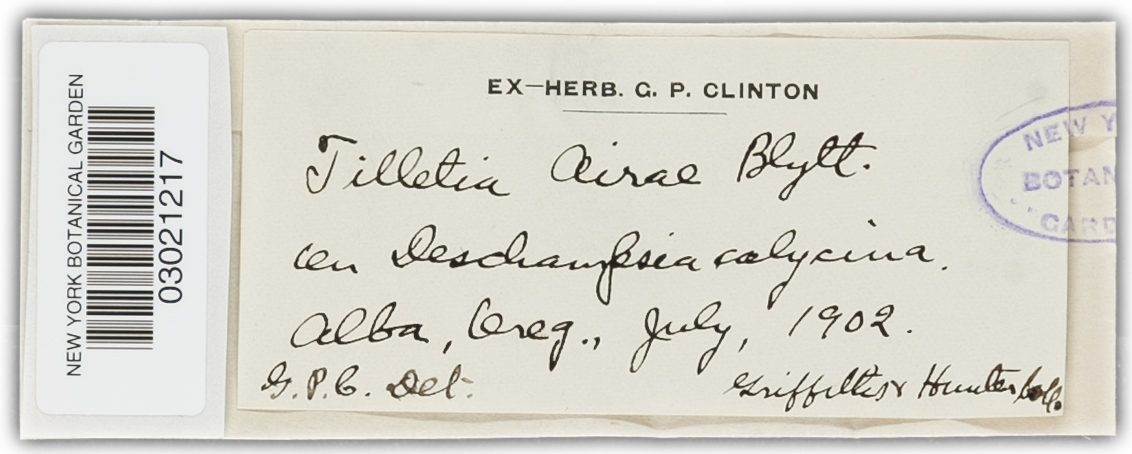 NEW YORK BOTANICAL GARDEN
03021217
EX—HERB. G. P. CLINTON
Tilletia Airae Blytt.
on Deschampsia calycina.
Alba, Oreg., July, 1902.
G.P.C. Det.
Griffiths & Hunter Coll.
NEW Y
BOTAN
GARD